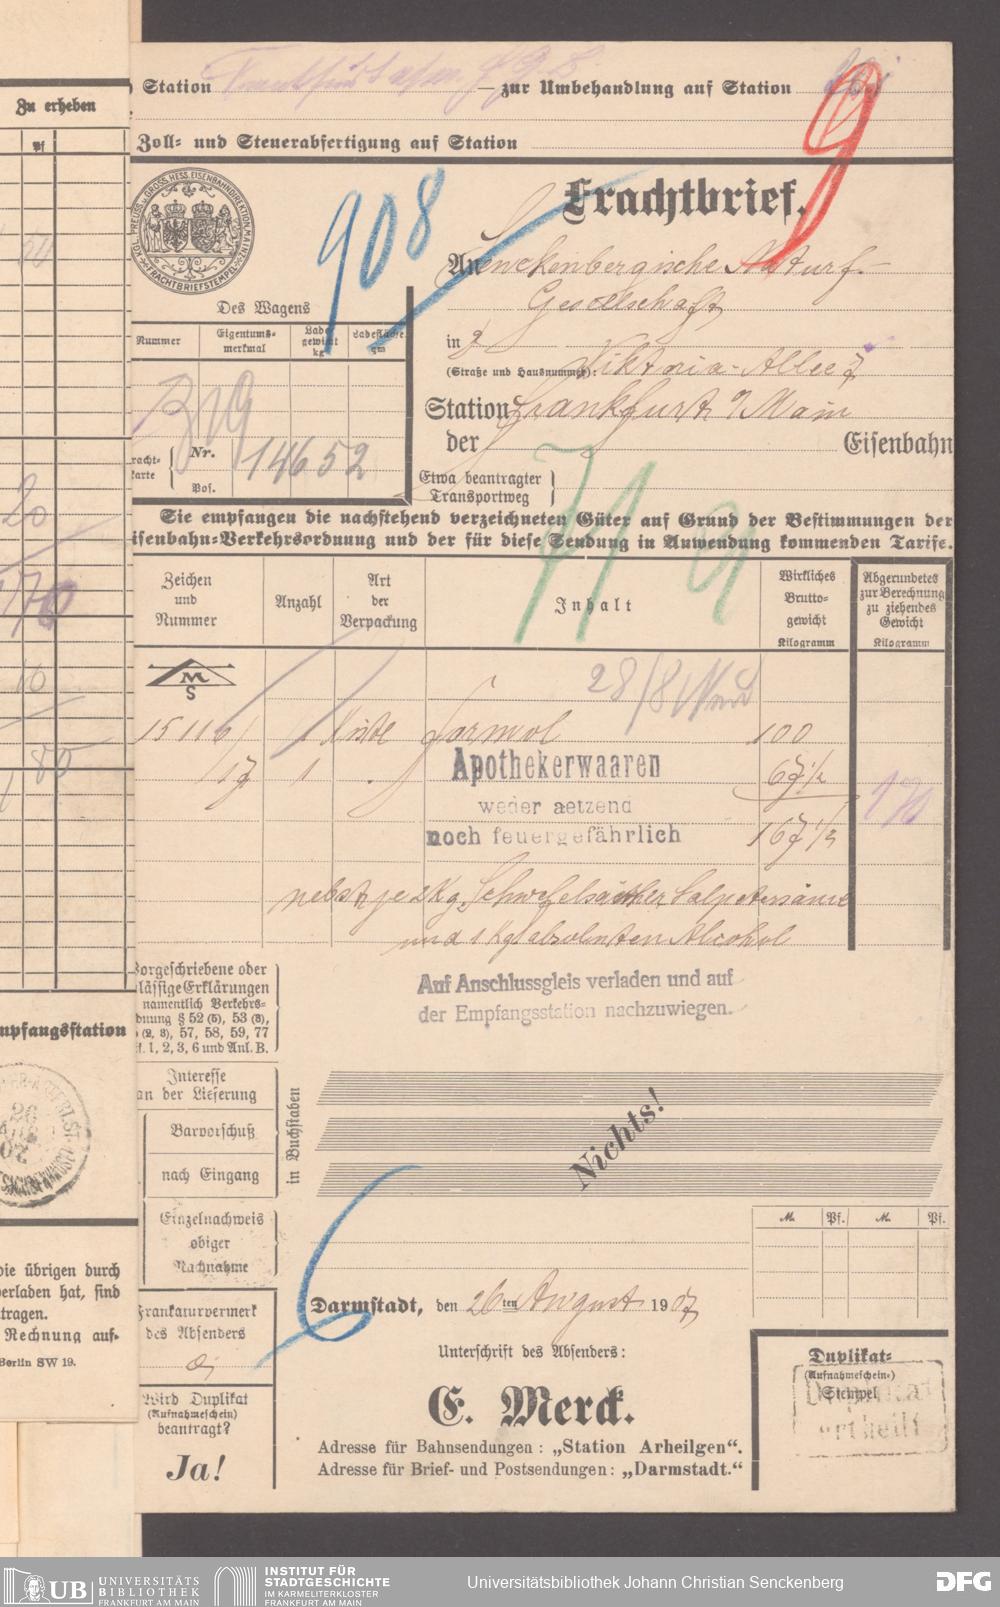 Zu erheben
Pf
20
170
10
80
Empfangsstation
die übrigen durch
verladen hat, sind
tragen.
Rechnung auf-
Berlin SW 19.
Station Frankfurt a/M. — zur Umbehandlung auf Station
Zoll- und Steuerabfertigung auf Station
9
KGL. PREUSS. U. GROSS. HESS. EISENBAHNDIREKTION MAINZ
FRACHTBRIEFSTEMPEL
908
Frachtbrief.
An Senckenbergische Naturf.
Gesellschaft
in
(Straße und Hausnummer): Viktoria-Allee 7
Station Frankfurt a/Main
der Eisenbahn
Etwa beantragter
Transportweg
Des Wagens
Nummer
Eigentums-
merkmal
Lade-
gewicht
kg
Ladefläche
qm
Fracht-
karte
Nr. 14652
Pos.
71 9
Sie empfangen die nachstehend verzeichneten Güter auf Grund der Bestimmungen der
Eisenbahn-Verkehrsordnung und der für diese Sendung in Anwendung kommenden Tarife.
Zeichen
und
Nummer
Anzahl
Art
der
Verpackung
Inhalt
Wirkliches
Brutto-
gewicht
Kilogramm
Abgerundetes
zur Berechnung
zu ziehendes
Gewicht
Kilogramm
M
S
28/8
15116/ 1 Kiste Formol 100
/17 1 " Apothekerwaaren 67 1/2 170
weder aetzend
noch feuergefährlich 167 1/2
nebst je 2 Kg. Schwefelsäther Salpetersäure
und 1 Kg absoluten Alcohol
Auf Anschlussgleis verladen und auf
der Empfangsstation nachzuwiegen.
Vorgeschriebene oder
zulässige Erklärungen
namentlich Verkehrs-
ordnung § 52 (5), 53 (8),
(2, 3), 57, 58, 59, 77
1, 2, 3, 6 und Anl. B.
Interesse
an der Lieferung
Barvorschuß
nach Eingang
Einzelnachweis
obiger
Nachnahme
in Buchstaben
Nichts!
M. Pf. M. Pf.
Frankaturvermerk
des Absenders
Darmstadt, den 26ten August 1907
Unterschrift des Absenders:
E. Merck.
Adresse für Bahnsendungen: „Station Arheilgen“.
Adresse für Brief- und Postsendungen: „Darmstadt.“
Wird Duplikat
(Aufnahmeschein)
beantragt?
Ja!
Duplikat-
(Aufnahmeschein-)
Stempel
Duplikat
ertheilt
UB UNIVERSITÄTS
BIBLIOTHEK
FRANKFURT AM MAIN
INSTITUT FÜR
STADTGESCHICHTE
IM KARMELITERKLOSTER
FRANKFURT AM MAIN
Universitätsbibliothek Johann Christian Senckenberg
DFG